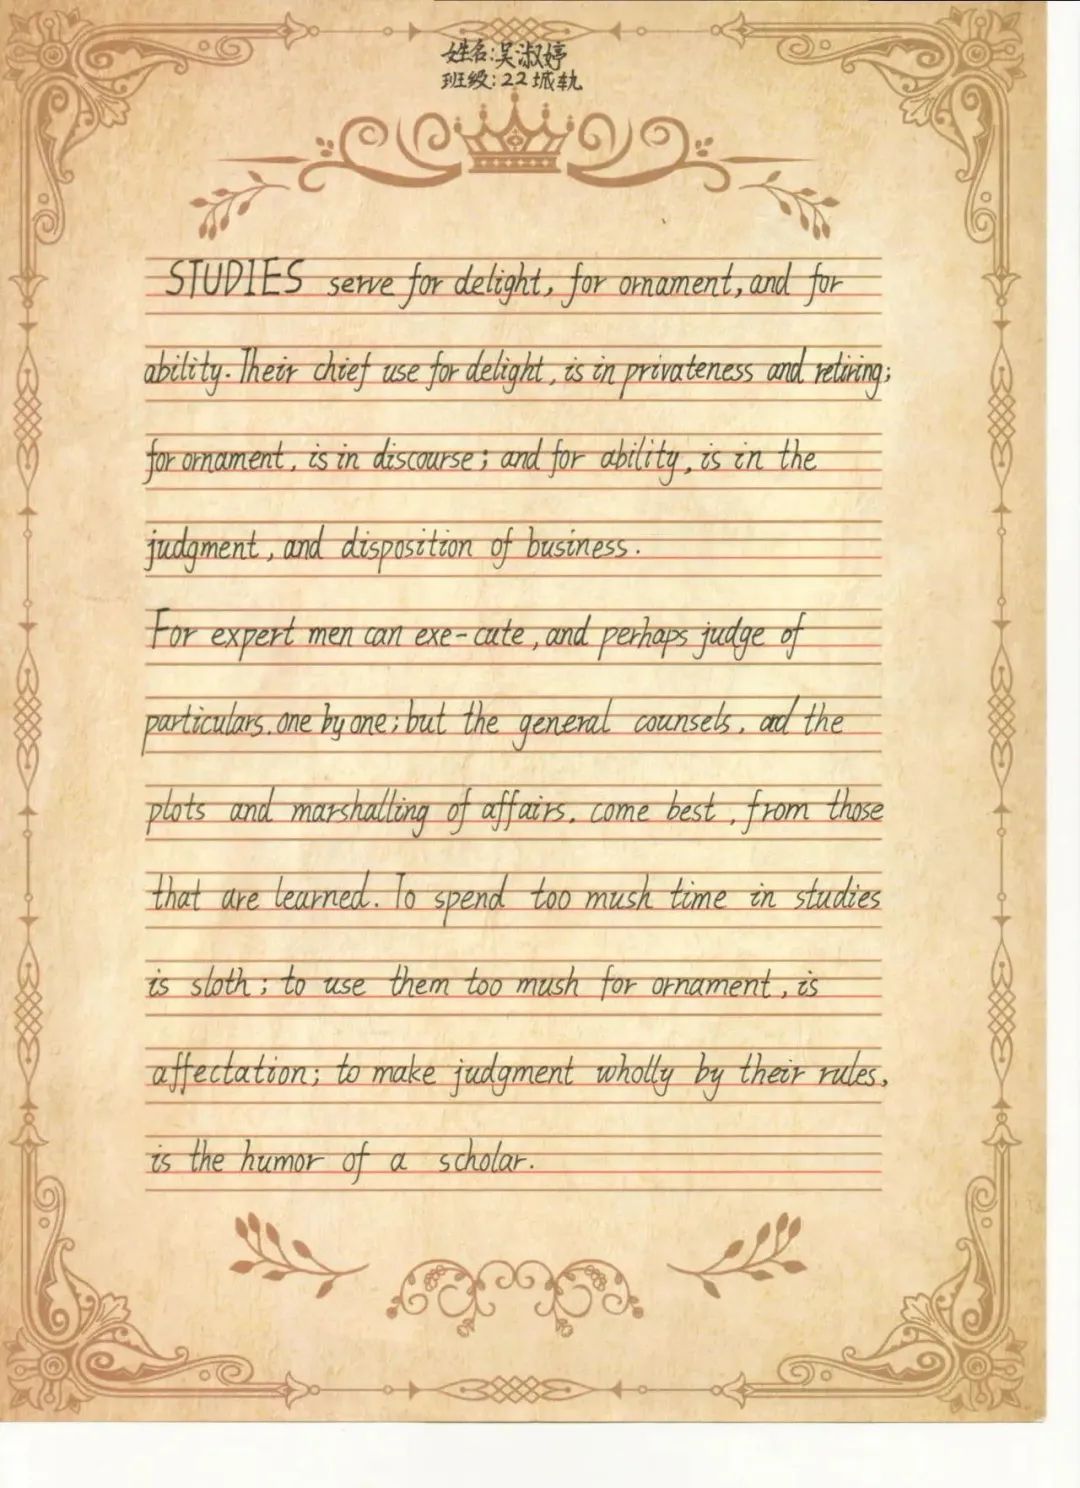 姓名:吴淑婷
班级:22城轨
STUDIES serve for delight, for ornament, and for
ability. Their chief use for delight, is in privateness and retiring;
for ornament, is in discourse; and for ability, is in the
judgment, and disposition of business.
For expert men can exe-cute, and perhaps judge of
particulars. one by one; but the general counsels. and the
plots and marshalling of affairs. come best, from those
that are learned. To spend too mush time in studies
is sloth; to use them too mush for ornament, is
affectation; to make judgment wholly by their rules,
is the humor of a scholar.